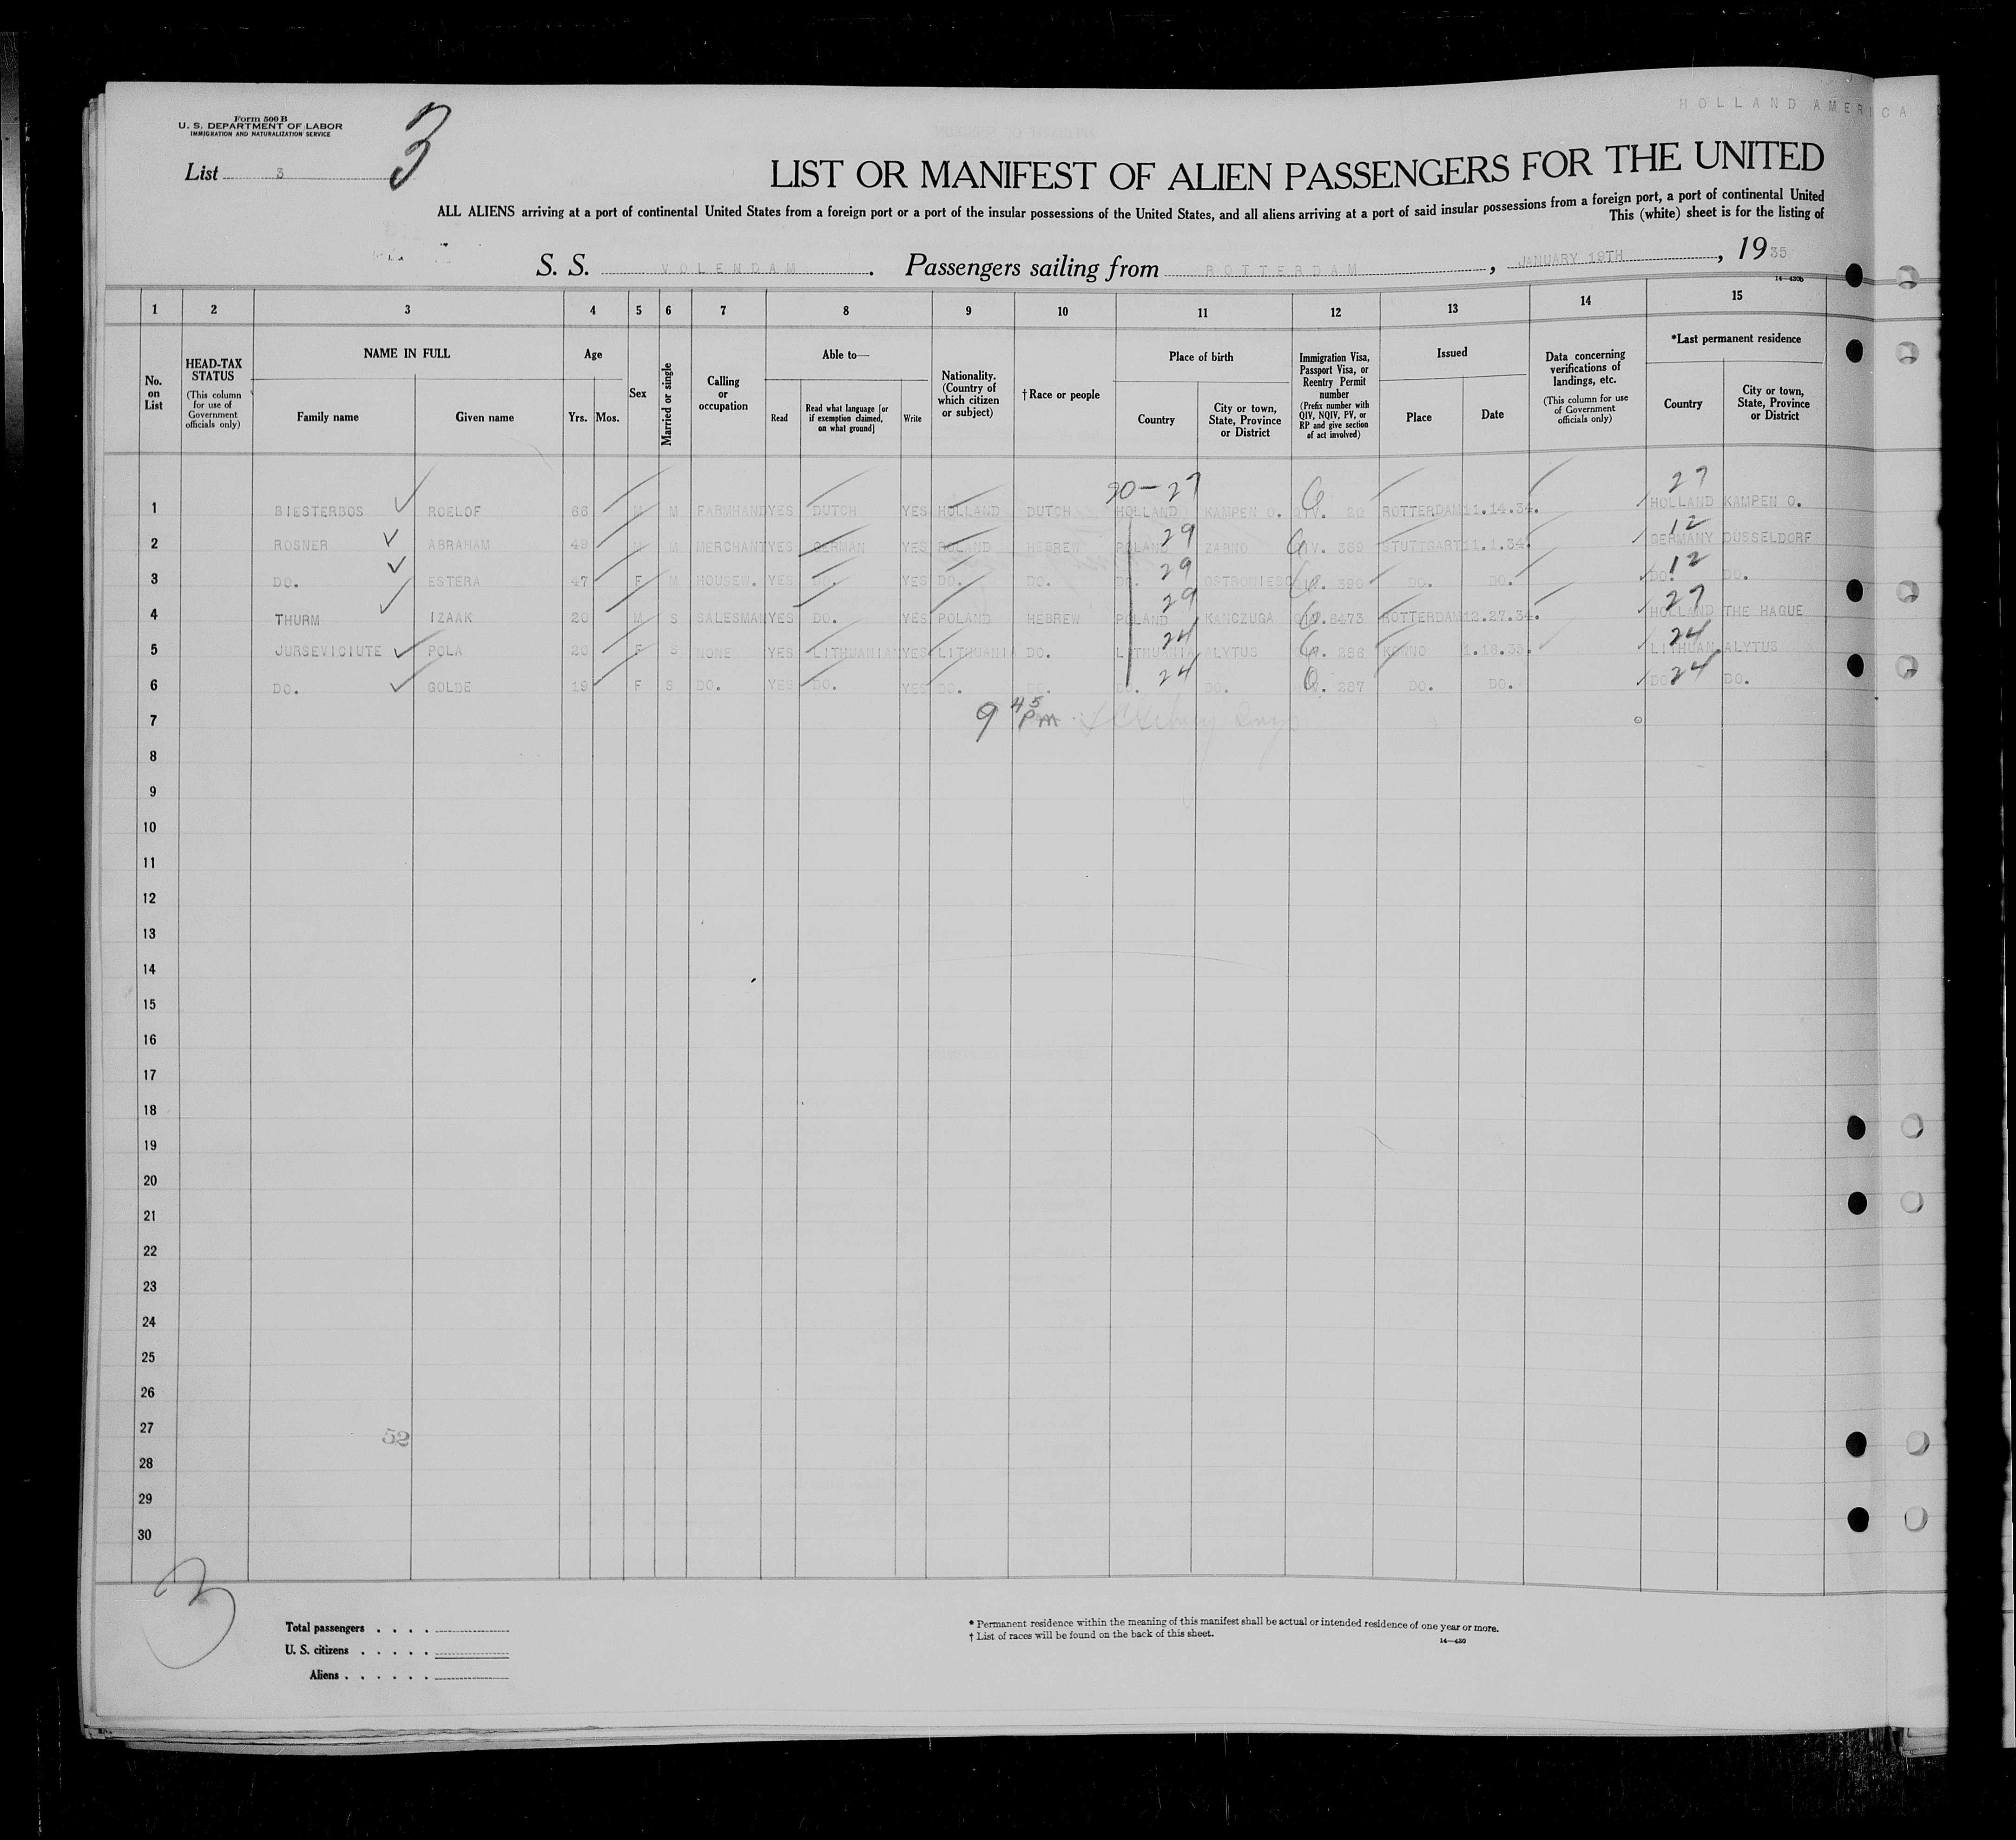 HOLLAND AMERICA
Form 500 B
U. S. DEPARTMENT OF LABOR
IMMIGRATION AND NATURALIZATION SERVICE
3
List 3
LIST OR MANIFEST OF ALIEN PASSENGERS FOR THE UNITED
ALL ALIENS arriving at a port of continental United States from a foreign port or a port of the insular possessions of the United States, and all aliens arriving at a port of said insular possessions from a foreign port, a port of continental United
This (white) sheet is for the listing of
S. S. VOLENDAM. Passengers sailing from ROTTERDAM, JANUARY 19TH, 1935
14—430b
1 2 3 4 5 6 7 8 9 10 11 12 13 14 15
No. on List
HEAD-TAX STATUS (This column for use of Government officials only)
NAME IN FULL Family name Given name
Age Yrs. Mos.
Sex
Married or single
Calling or occupation
Able to— Read Read what language [or if exemption claimed, on what ground] Write
Nationality. (Country of which citizen or subject)
† Race or people
Place of birth Country City or town, State, Province or District
Immigration Visa, Passport Visa, or Reentry Permit number (Prefix number with QIV, NQIV, PV, or RP and give section of act involved)
Issued Place Date
Data concerning verifications of landings, etc. (This column for use of Government officials only)
*Last permanent residence Country City or town, State, Province or District
20-27 27
1 BIESTERBOS ROELOF 66 M M FARMHAND YES DUTCH YES HOLLAND DUTCH HOLLAND KAMPEN O. QIV. 20 ROTTERDAM 11.14.34. HOLLAND KAMPEN O.
29 12
2 ROSNER ABRAHAM 49 M M MERCHANT YES GERMAN YES POLAND HEBREW POLAND ZABNO QIV. 389 STUTTGART 11.1.34. GERMANY DUSSELDORF
29 12
3 DO. ESTERA 47 F M HOUSEW. YES DO. YES DO. DO. DO. 390 DO. DO. DO. DO.
29 27
4 THURM IZAAK 20 M S SALESMAN YES DO. YES POLAND HEBREW POLAND KANCZUGA QIV.8473 ROTTERDAM 12.27.34. HOLLAND THE HAGUE
24 24
5 JURSEVICIUTE POLA 20 F S NONE YES LITHUANIAN YES LITHUANIA DO. LITHUANIA ALYTUS 286 KOVNO 1.16.35. LITHUAN. ALYTUS
24 24
6 DO. GOLDE 19 F S DO. YES DO. YES DO. DO. DO. DO. 287 DO. DO. DO. DO.
7 9 45 PM
8
9
10
11
12
13
14
15
16
17
18
19
20
21
22
23
24
25
26
27
52
28
29
30
3
Total passengers . . . .
U. S. citizens . . . . .
Aliens . . . . . .
* Permanent residence within the meaning of this manifest shall be actual or intended residence of one year or more.
† List of races will be found on the back of this sheet.
14—430